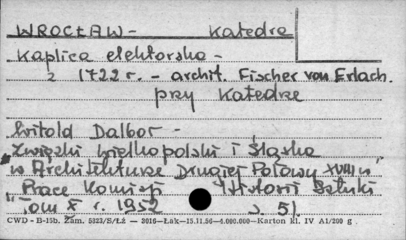 WROCŁAW - Katedra
Kaplica elektorska -
z 1722 r. - archit. Fischer von Erlach.
przy Katedrze
Witold Dalbor -
"Związki Wielkopolski i Śląska
w Architekturze Drugiej Połowy XVIII w"
Prace Komisji Historii Sztuki
Tom 8 r. 1952 s. 51.
CWD - B-15b. Zam. 5323/S/Łż — 2016—Łak—15.11.56—4.000.000—Karton kl. IV A1/200 g.